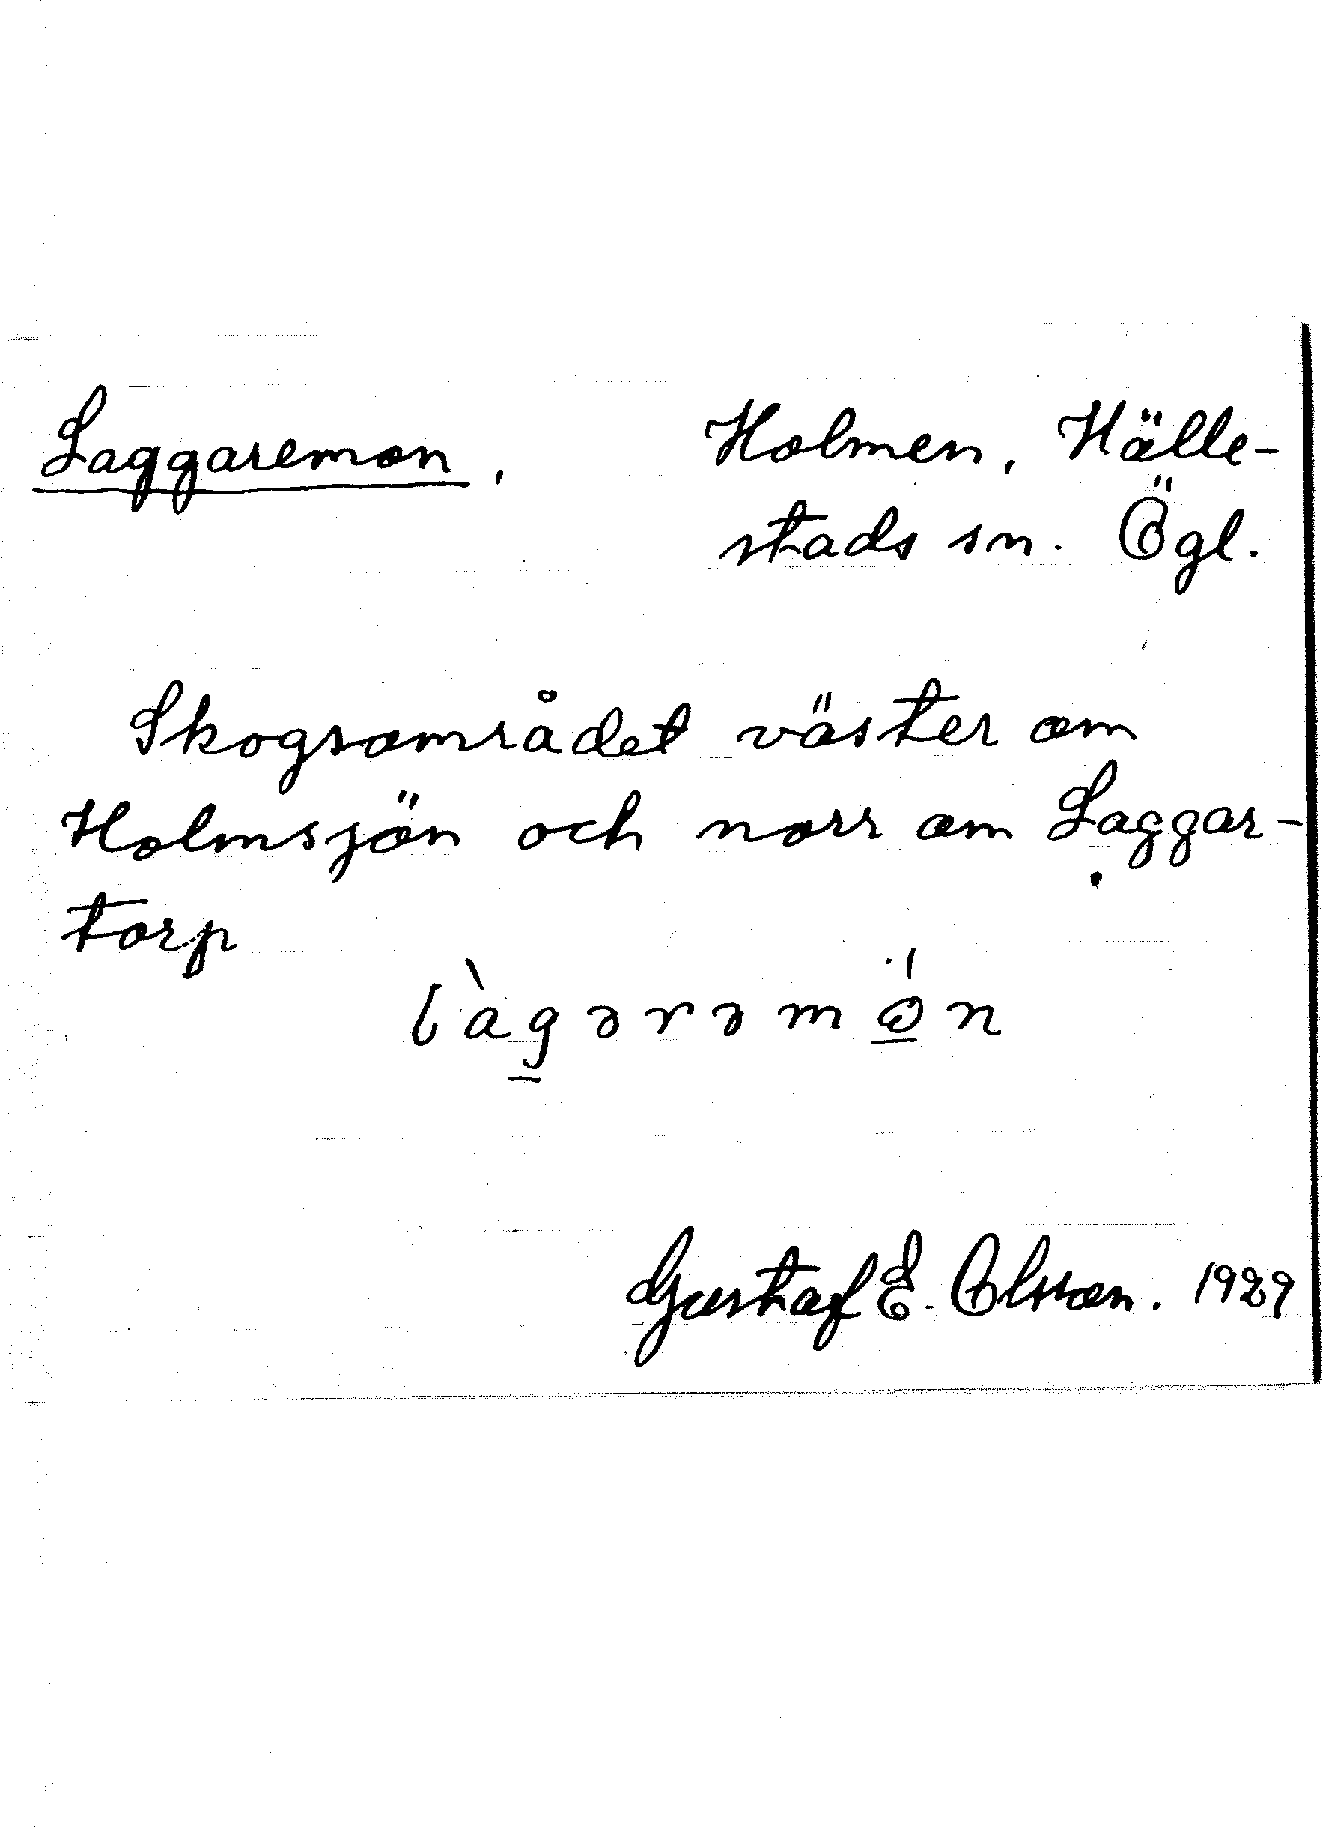 Laggaremon, Holmen, Hälle-
stads sn. Ögl.
Skogsområdet väster om
Holmsjön och norr om Laggar-
torp
làgərəmón
Gustaf E. Olsson. 1929